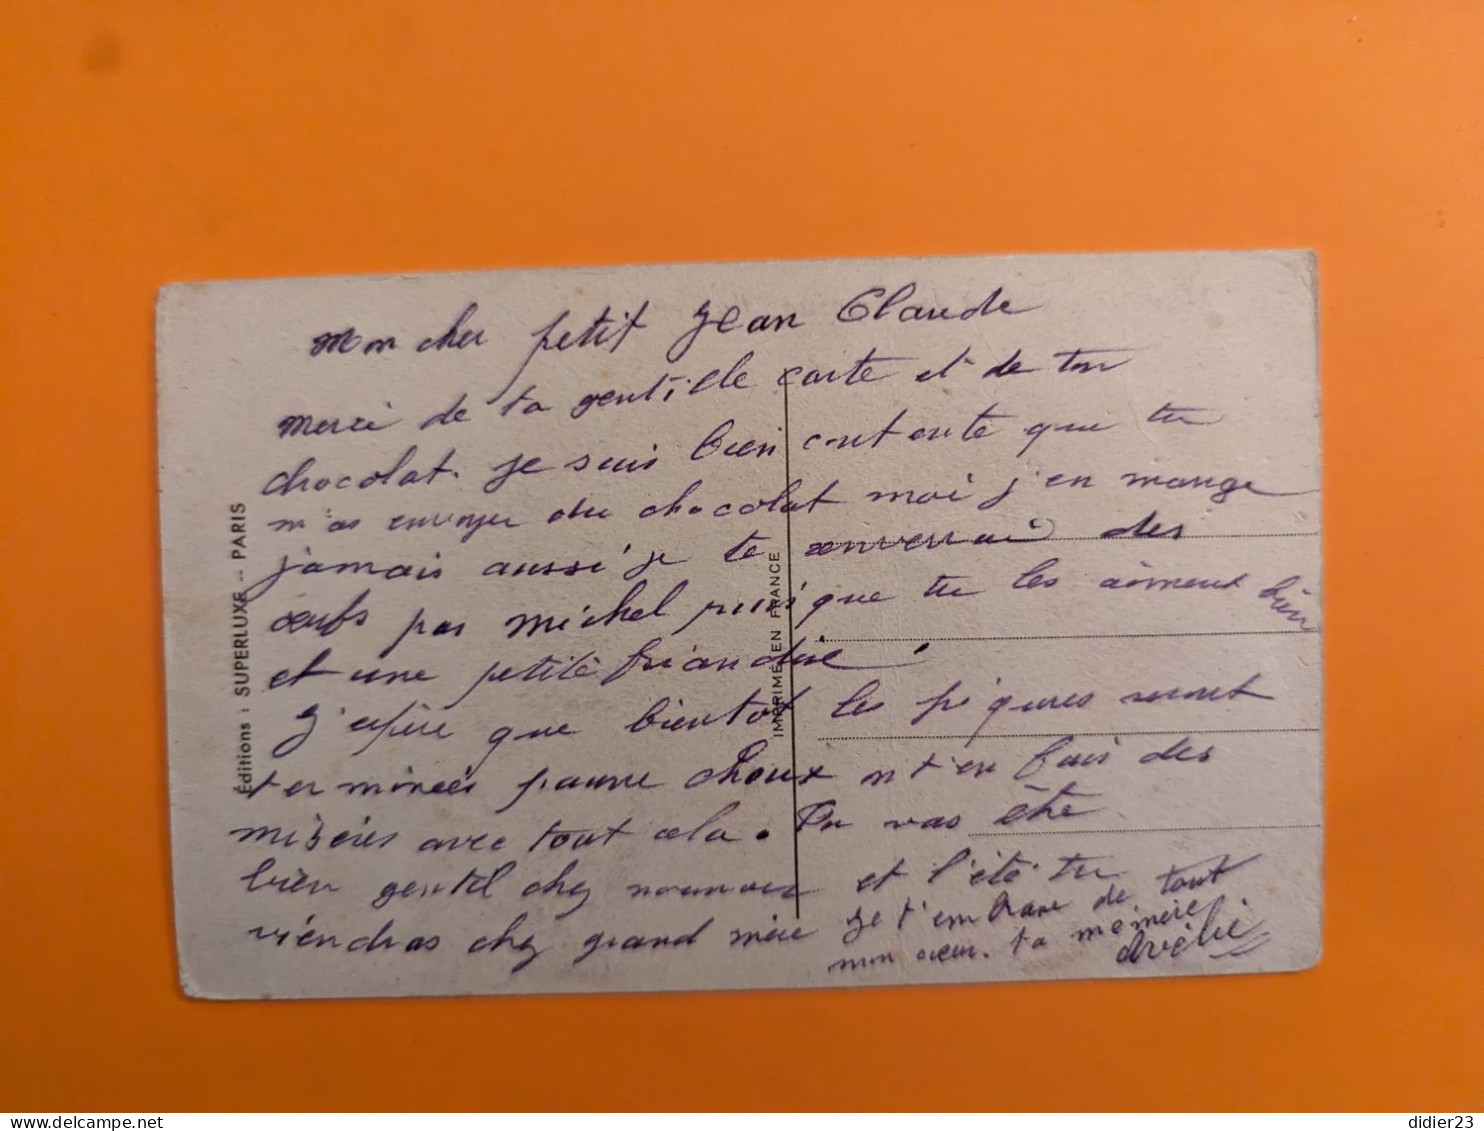 Mon cher petit Jean Claude
merci de ta gentille carte et de ton
chocolat. je suis bien contente que tu
m'as envoyer du chocolat moi j'en mange
jamais aussi je te enverrai des
œufs par Michel puisque tu les aiment bien
et une petite friandise.
J'espère que bientot les piqures seront
terminées pauvre choux on t'en fais des
misères avec tout cela. Tu vas être
bien gentil chez nounou et l'été tu
viendras chez grand mère je t'embrasse de tout
mon cœur. ta mémère
Éditions : SUPERLUXE -- PARIS
IMPRIMÉ EN FRANCE
didier23